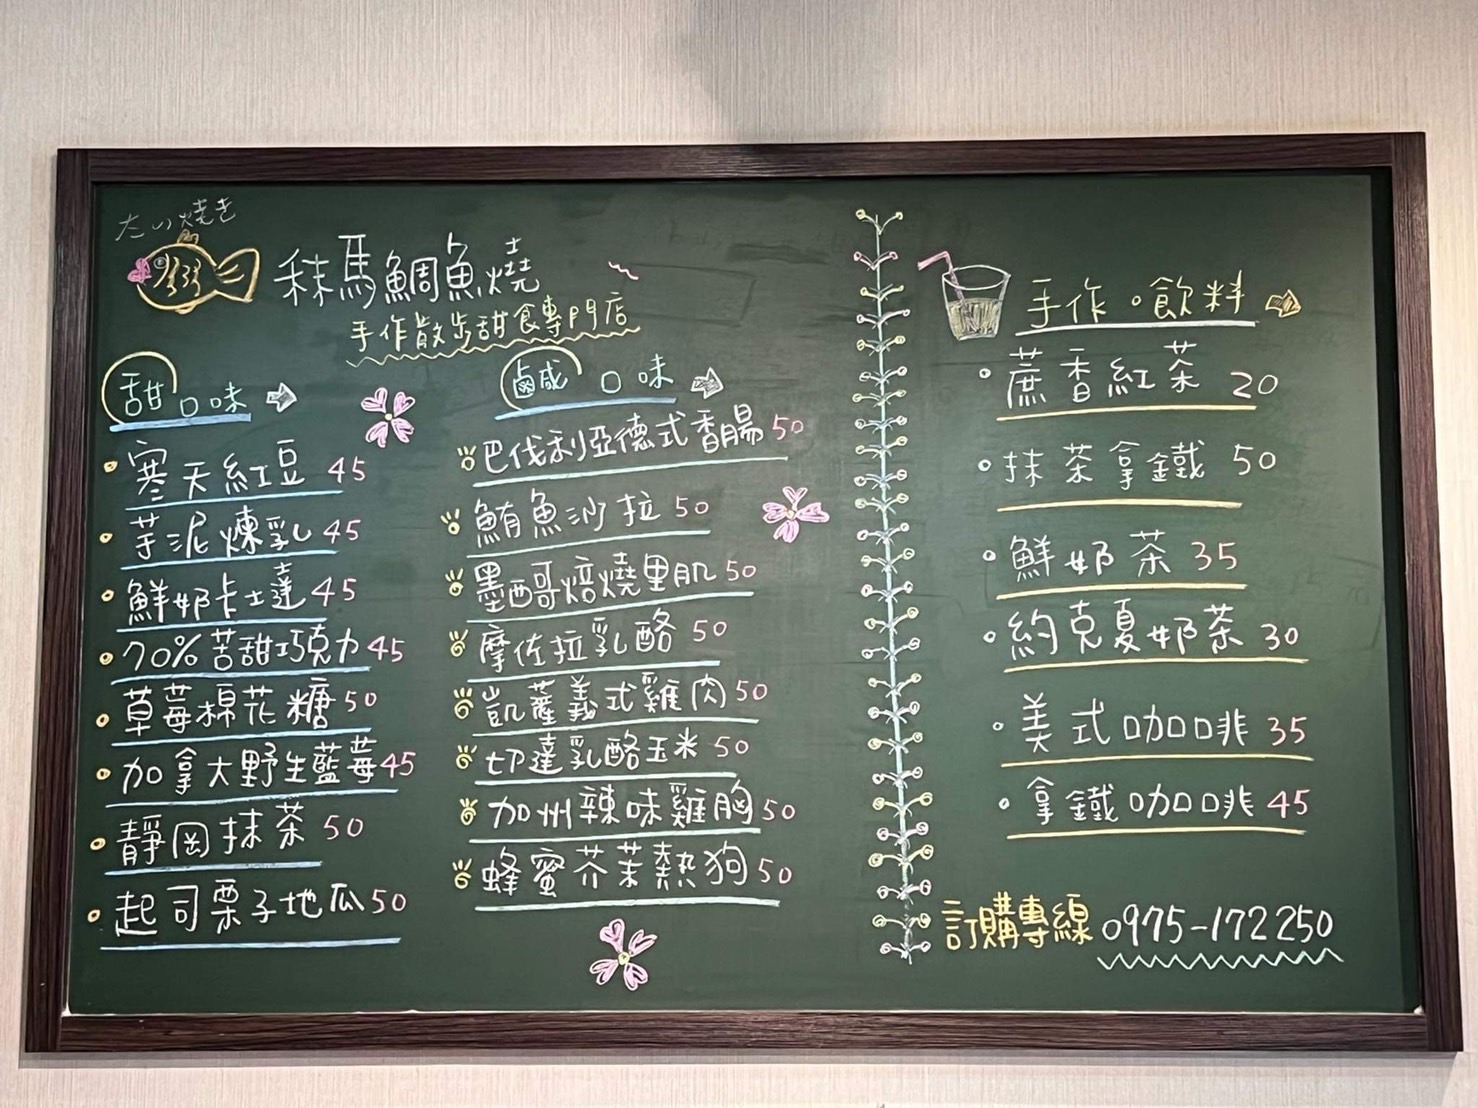 たい焼き
秣馬鯛魚燒
手作散步甜食專門店
甜口味
寒天紅豆 45
芋泥煉乳 45
鮮奶卡士達 45
70%苦甜巧克力 45
草莓棉花糖 50
加拿大野生藍莓 45
靜岡抹茶 50
起司栗子地瓜 50
鹹口味
巴伐利亞德式香腸 50
鮪魚沙拉 50
墨西哥焙燒里肌 50
摩佐拉乳酪 50
凱薩義式雞肉 50
切達乳酪玉米 50
加州辣味雞胸 50
蜂蜜芥茉熱狗 50
手作。飲料
蔗香紅茶 20
抹茶拿鐵 50
鮮奶茶 35
約克夏奶茶 30
美式咖啡 35
拿鐵咖啡 45
訂購專線 0975-172250